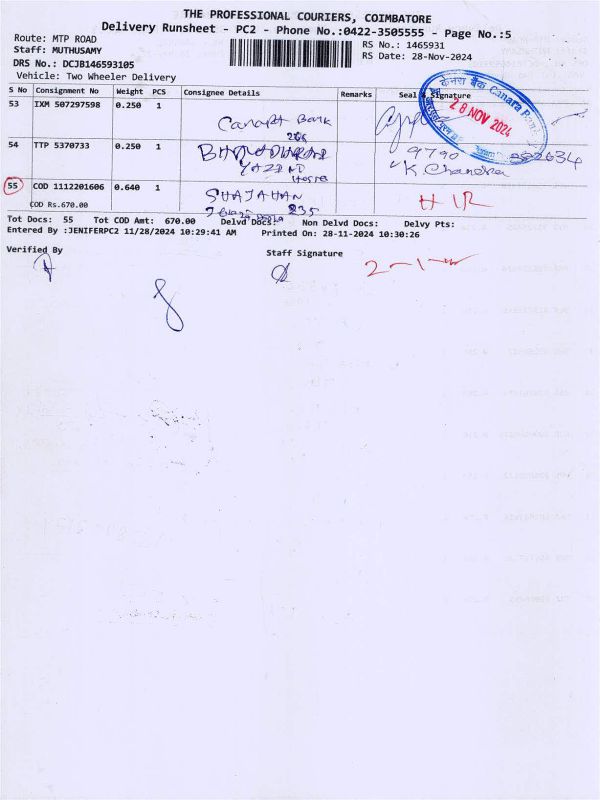 THE PROFESSIONAL COURIERS, COIMBATORE
Delivery Runsheet - PC2 - Phone No.:0422-3505555 - Page No.:5
Route: MTP ROAD
Staff: MUTHUSAMY
DRS No.: DCJB146593105
Vehicle: Two Wheeler Delivery
RS No.: 1465931
RS Date: 28-Nov-2024
S No Consignment No Weight PCS Consignee Details Remarks Seal & Signature
53 IXM 507297598 0.250 1
Canara Bank
केनरा बैंक Canara
28 NOV 2024
54 TTP 5370733 0.250 1
9790
K Chandra
55 COD 1112201606 0.640 1 SHAJAHAN
COD Rs.670.00
235
Tot Docs: 55 Tot COD Amt: 670.00 Delvd Docs: Non Delvd Docs: Delvy Pts:
Entered By :JENIFERPC2 11/28/2024 10:29:41 AM Printed On: 28-11-2024 10:30:26
Verified By Staff Signature